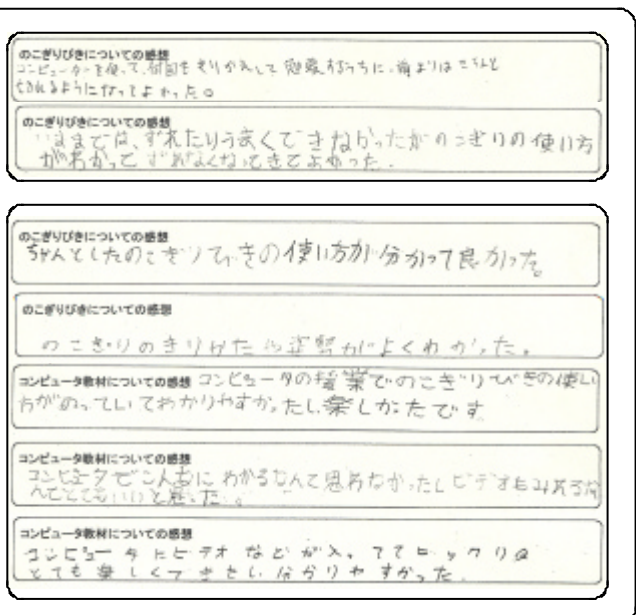 のこぎりびきについての感想
コンピューターを使って、何回もくりかえして勉強するうちに、前よりはきちんと
切れるようになってよかった。
のこぎりびきについての感想
いままでは、ずれたりうまくできなかったがのこぎりの使い方
がわかってずれなくなってきてよかった。
のこぎりびきについての感想
ちゃんとしたのこぎりびきの使い方が分かって良かった。
のこぎりびきについての感想
のこぎりのきりかたや姿勢がよくわかった。
コンピュータ教材についての感想 コンピュータの授業でのこぎりびきの使い
方がのっていてわかりやすかったし楽しかたです
コンピュータ教材についての感想
コンピュータでこんなにわかるなんて思わなかったしビデオもみれるな
んてとてもいいと思った。
コンピュータ教材についての感想
コンピュータにビデオなどが入っててビックリ
とても楽しくできたし、分かりやすかった。